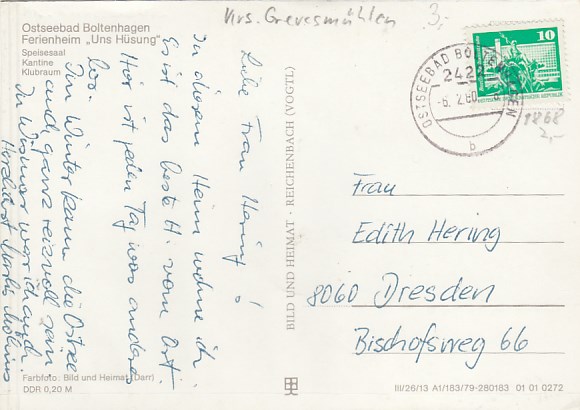 Ostseebad Boltenhagen
Ferienheim „Uns Hüsung“
Speisesaal
Kantine
Klubraum
Krs. Grevesmühlen
3,-
10
OSTSEEBAD BOLTENHAGEN
2422
-6.2.80
b
1868
2,-
Liebe Frau Hering!
In diesem Heim wohne ich.
Es ist das beste H. vom Ort.
Hier ist jeden Tag was anderes
los.
Im Winter kann die Ostsee
auch ganz reizvoll sein.
In Wismar war ich auch.
Herzlichst
BILD UND HEIMAT · REICHENBACH (VOGTL)
Frau
Edith Hering
8060 Dresden
Bischofsweg 66
Farbfoto: Bild und Heimat (Darr)
DDR 0,20 M
III/26/13 A1/183/79-280183 01 01 0272